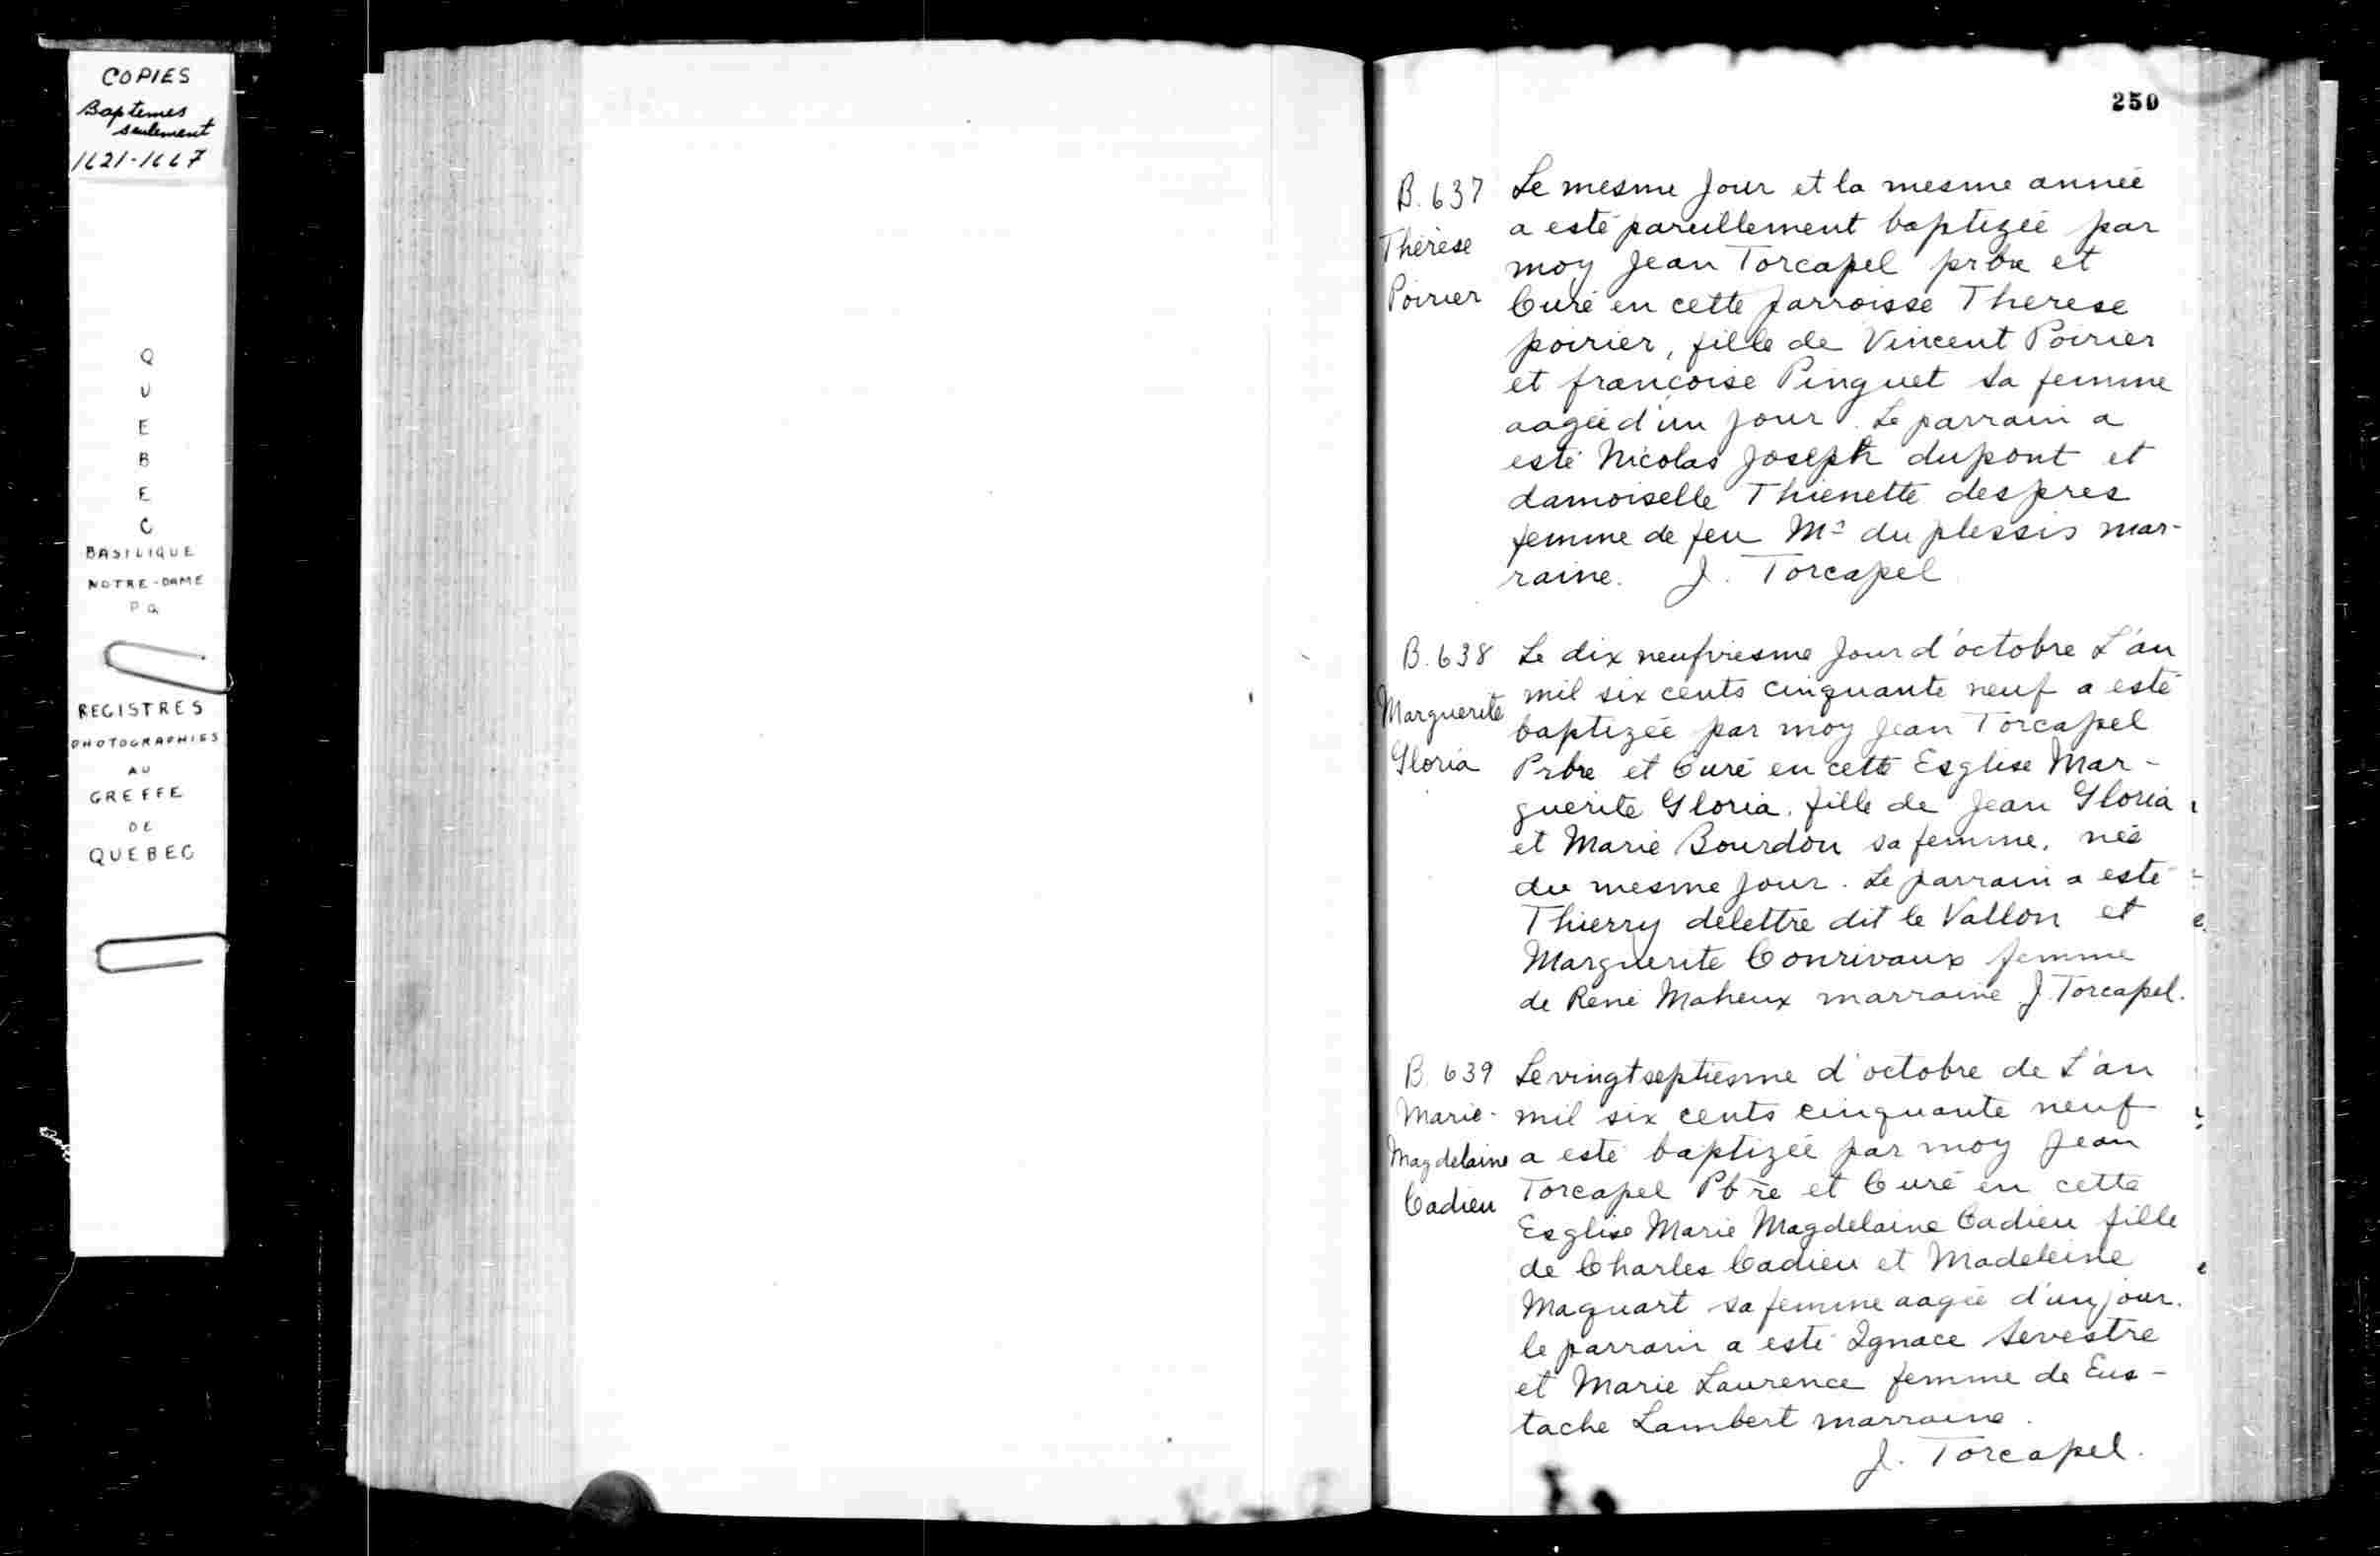 COPIES
Baptemes
seulement
1621-1667
Q
U
E
B
E
C
BASILIQUE
NOTRE-DAME
P Q
REGISTRES
PHOTOGRAPHIES
AU
GREFFE
DE
QUEBEC
250
B. 637
Thérèse
Poirier
Le mesme Jour et la mesme année
a esté pareillement baptizée par
moy Jean Torcapel prbre et
Curé en cette parroisse Therese
poirier, fille de Vincent Poirier
et francoise Pinguet sa femme
aagée d'un Jour. Le parrain a
esté Nicolas Joseph dupont et
damoiselle Thienette despres
femme de feu Mr du plessis mar-
raine. J. Torcapel
B. 638
Marguerite
Gloria
Le dix neufviesme Jour d'octobre L'an
mil six cents cinquante neuf a esté
baptizée par moy Jean Torcapel
Prbre et Curé en cette Esglise Mar-
guerite Gloria, fille de Jean Gloria
et Marie Bourdon sa femme, née
du mesme Jour. Le parrain a esté
Thierry delettre dit le Vallon et
Marguerite Conrivaux femme
de René Maheux marraine J. Torcapel.
B. 639
Marie-
Magdelaine
Cadieu
Le vingt septiesme d'octobre de L'an
mil six cents cinquante neuf
a esté baptizée par moy Jean
Torcapel Pbre et Curé en cette
Esglise Marie Magdelaine Cadieu fille
de Charles Cadieu et Madeleine
Maquart sa femme aagée d'un jour.
le parrain a esté Ignace Sevestre
et Marie Laurence femme de Eus-
tache Lambert marraine.
J. Torcapel.